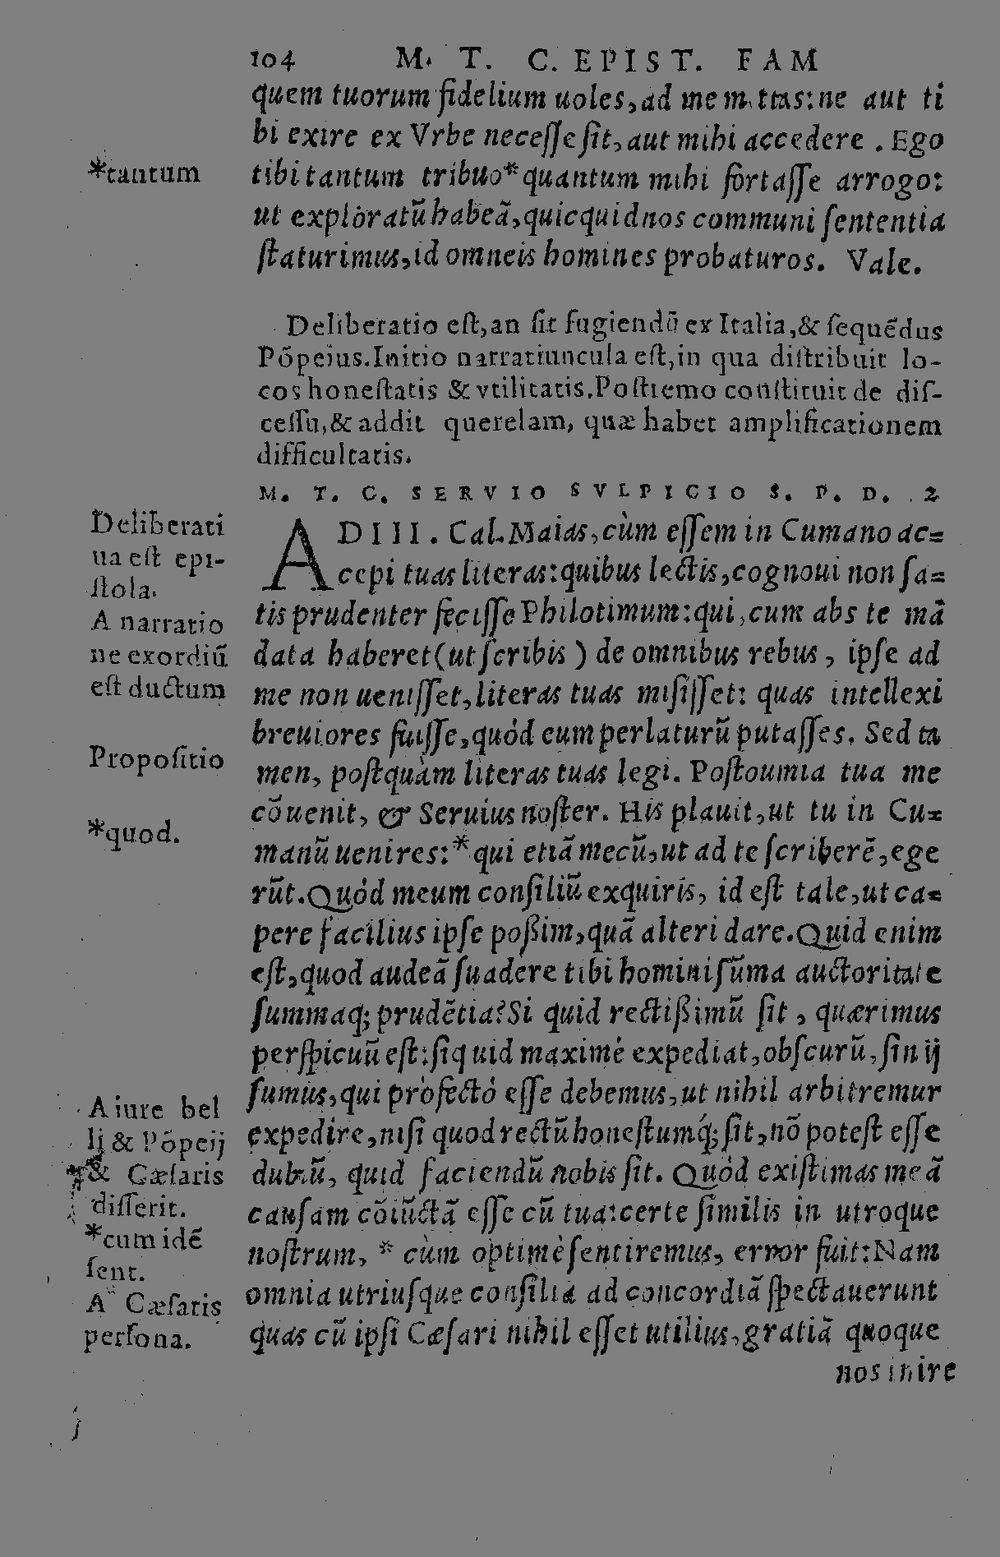 104 M. T. C. EPIST. FAM
quem tuorum fidelium uoles, ad me mittas: ne aut ti
bi exire ex Vrbe necesse sit, aut mihi accedere. Ego
tibi tantum tribuo* quantum mihi fortasse arrogo:
*tantum
ut exploratũ habeã, quicquid nos communi sententia
staturimus, id omneis homines probaturos. Vale.
Deliberatio est, an sit fugiendũ ex Italia, & sequẽdus
Põpeius. Initio narratiuncula est, in qua distribuit lo-
cos honestatis & vtilitatis. Postremo constituit de dis-
cessu, & addit querelam, quæ habet amplificationem
difficultatis.
M. T. C. SERVIO SVLPICIO S. P. D. 2
AD III. Cal. Maias, cùm essem in Cumano ac=
cepi tuas literas: quibus lectis, cognoui non sa=
tis prudenter fecisse Philotimum: qui, cum abs te mã
data haberet (ut scribis) de omnibus rebus, ipse ad
me non uenisset, literas tuas misisset: quas intellexi
breuiores fuisse, quòd eum perlaturũ putasses. Sed ta
men, postquàm literas tuas legi. Postoumia tua me
cõuenit, & Seruius noster. His plauit, ut tu in Cu=
manũ uenires: * qui etiã mecũ, ut ad te scriberẽ, ege
rũt. Quòd meum consiliũ exquiris, id est tale, ut ca=
pere facilius ipse poßim, quã alteri dare. Quid enim
est, quod audeã suadere tibi homini sũma auctoritate
summaq; prudẽtia? Si quid rectißimũ sit, quærimus
perspicuũ est: si quid maximè expediat, obscurũ, sin ij
sumus, qui profectò esse debemus, ut nihil arbitremur
expedire, nisi quod rectũ honestumq́; sit, nõ potest esse
dubiũ, quid faciendũ nobis sit. Quòd existimas meã
causam cõiũctã esse cũ tua: certe similis in utroque
nostrum, * cùm optimè sentiremus, error fuit: Nam
omnia utriusque consilia ad concordiã spectauerunt
quas cũ ipsi Cæsari nihil esset utilius, gratiã quoque
nos inire
Deliberati
ua est epi-
stola.
A narratio
ne exordiũ
est ductum
Propositio
*quod.
A iure bel
li & Põpeij
& Cæsaris
disserit.
*cum idẽ
sent.
A Cæsaris
persona.